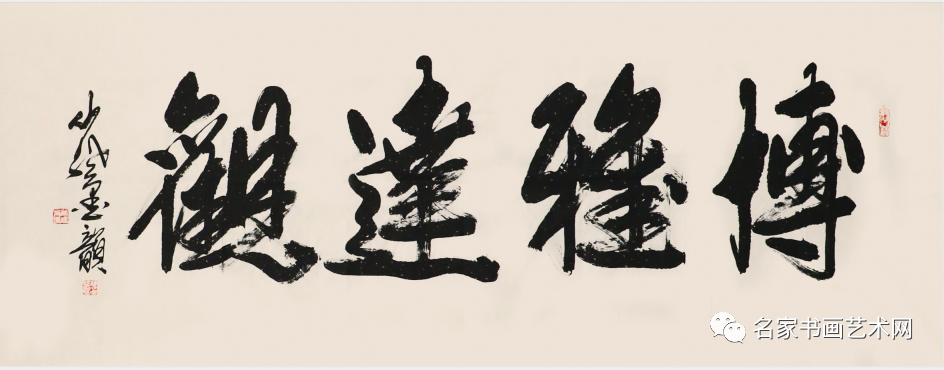 博雅達觀
墨韻
名家书画艺术网